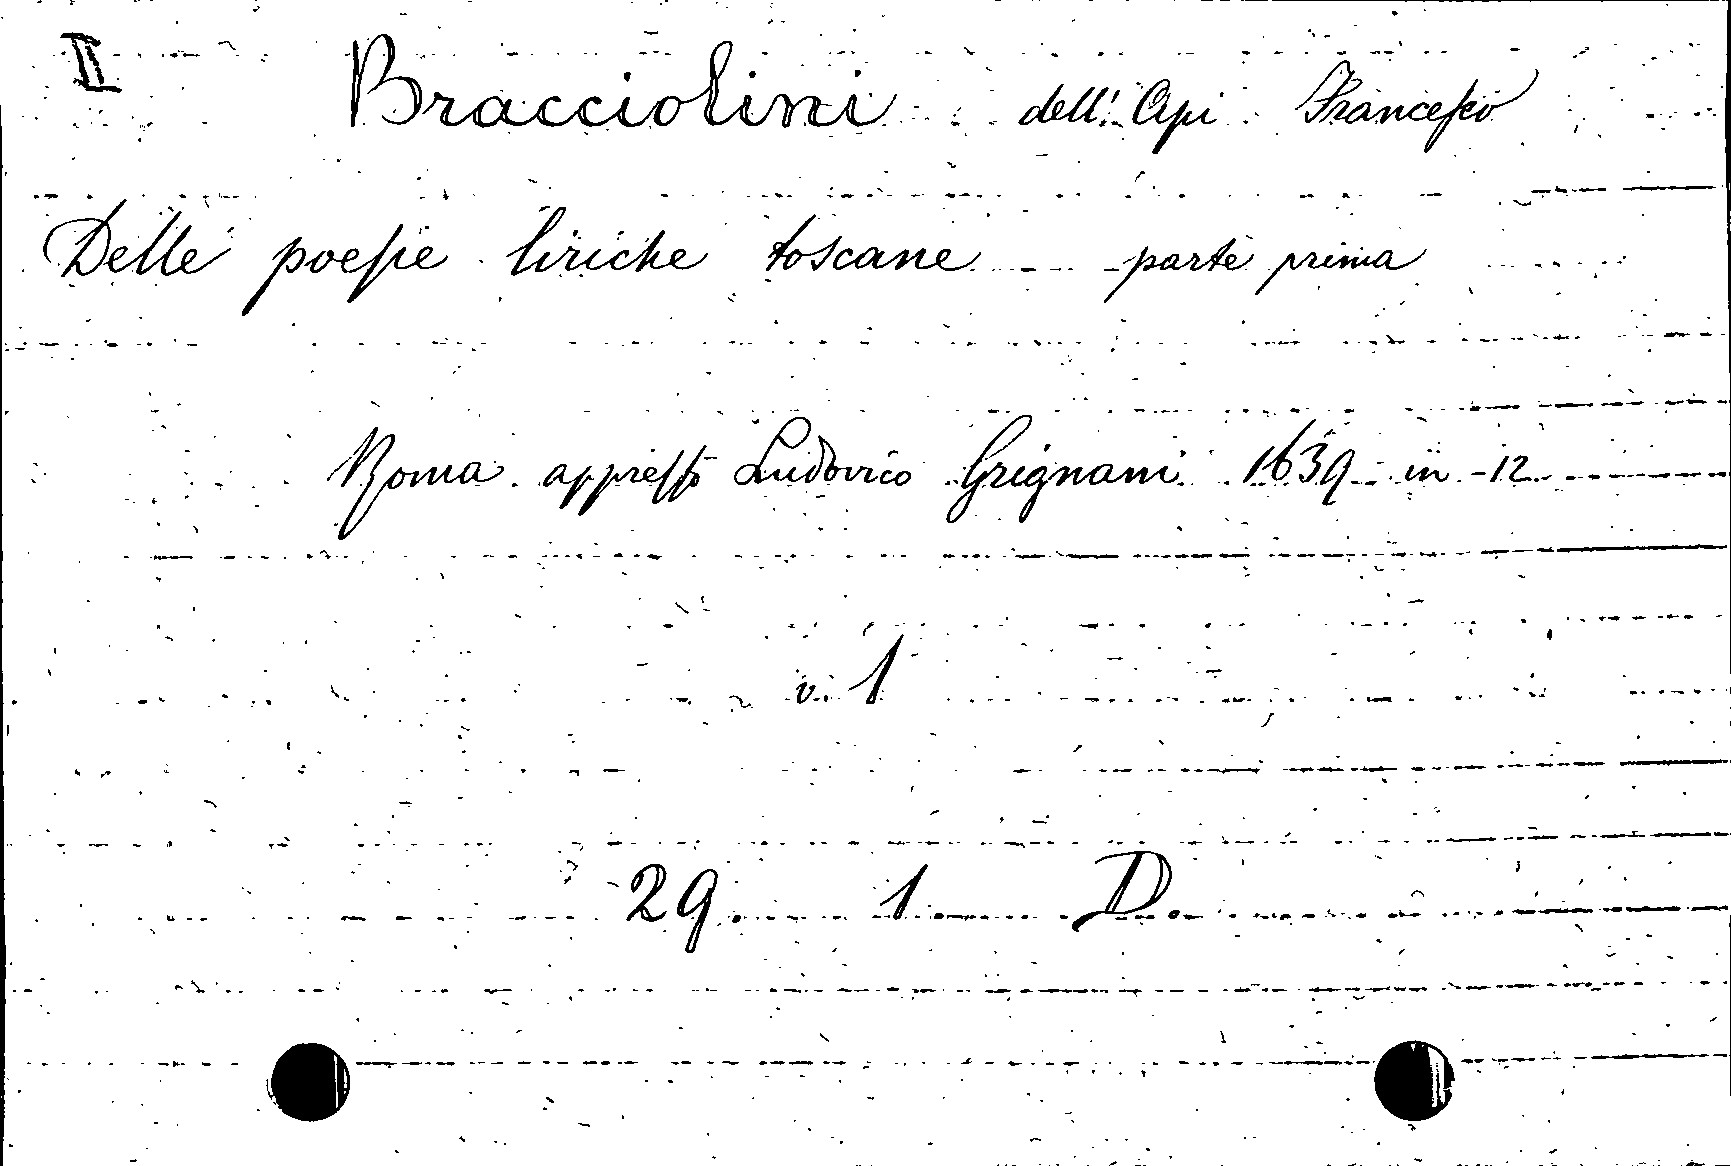 II Bracciolini dell' Api Francesco
Delle poesie liriche toscane parte prima
Roma appresso Ludovico Grignani 1639 in -12
v. 1
29 1 D